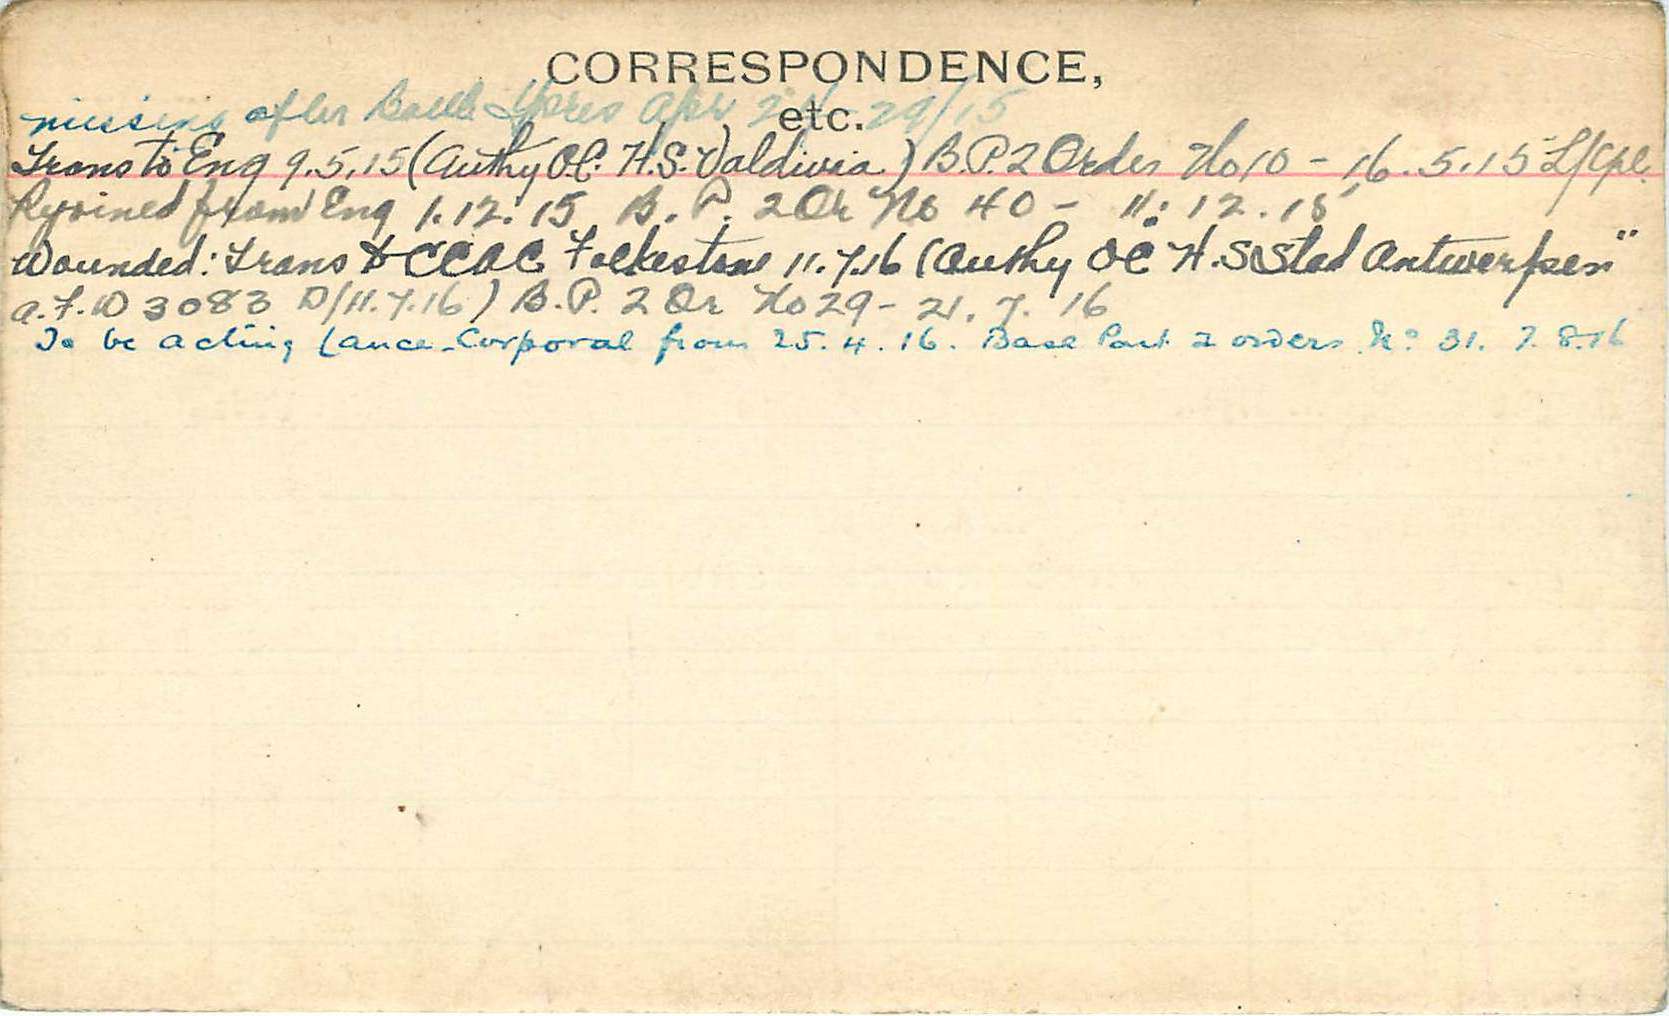 CORRESPONDENCE,
etc.
missing after Battle Ypres Apr 29/15
Trans to Eng 9.5.15 (Authy O.C. H.S. Valdivia) B.P.2 Order No 10 - 16.5.15 L/Cpl.
Rejoined from Eng 1.12.15 B.P. 2 Or No 40 - 11.12.15
Wounded: Trans to CCAC Folkestone 11.7.16 (Authy OC H.S Stad Antwerpen"
A.F.W 3083 D/11.7.16) B.P. 2 Or No 29 - 21.7.16
To be acting Lance-Corporal from 25.4.16. Base Part 2 orders No 31. 7.8.16